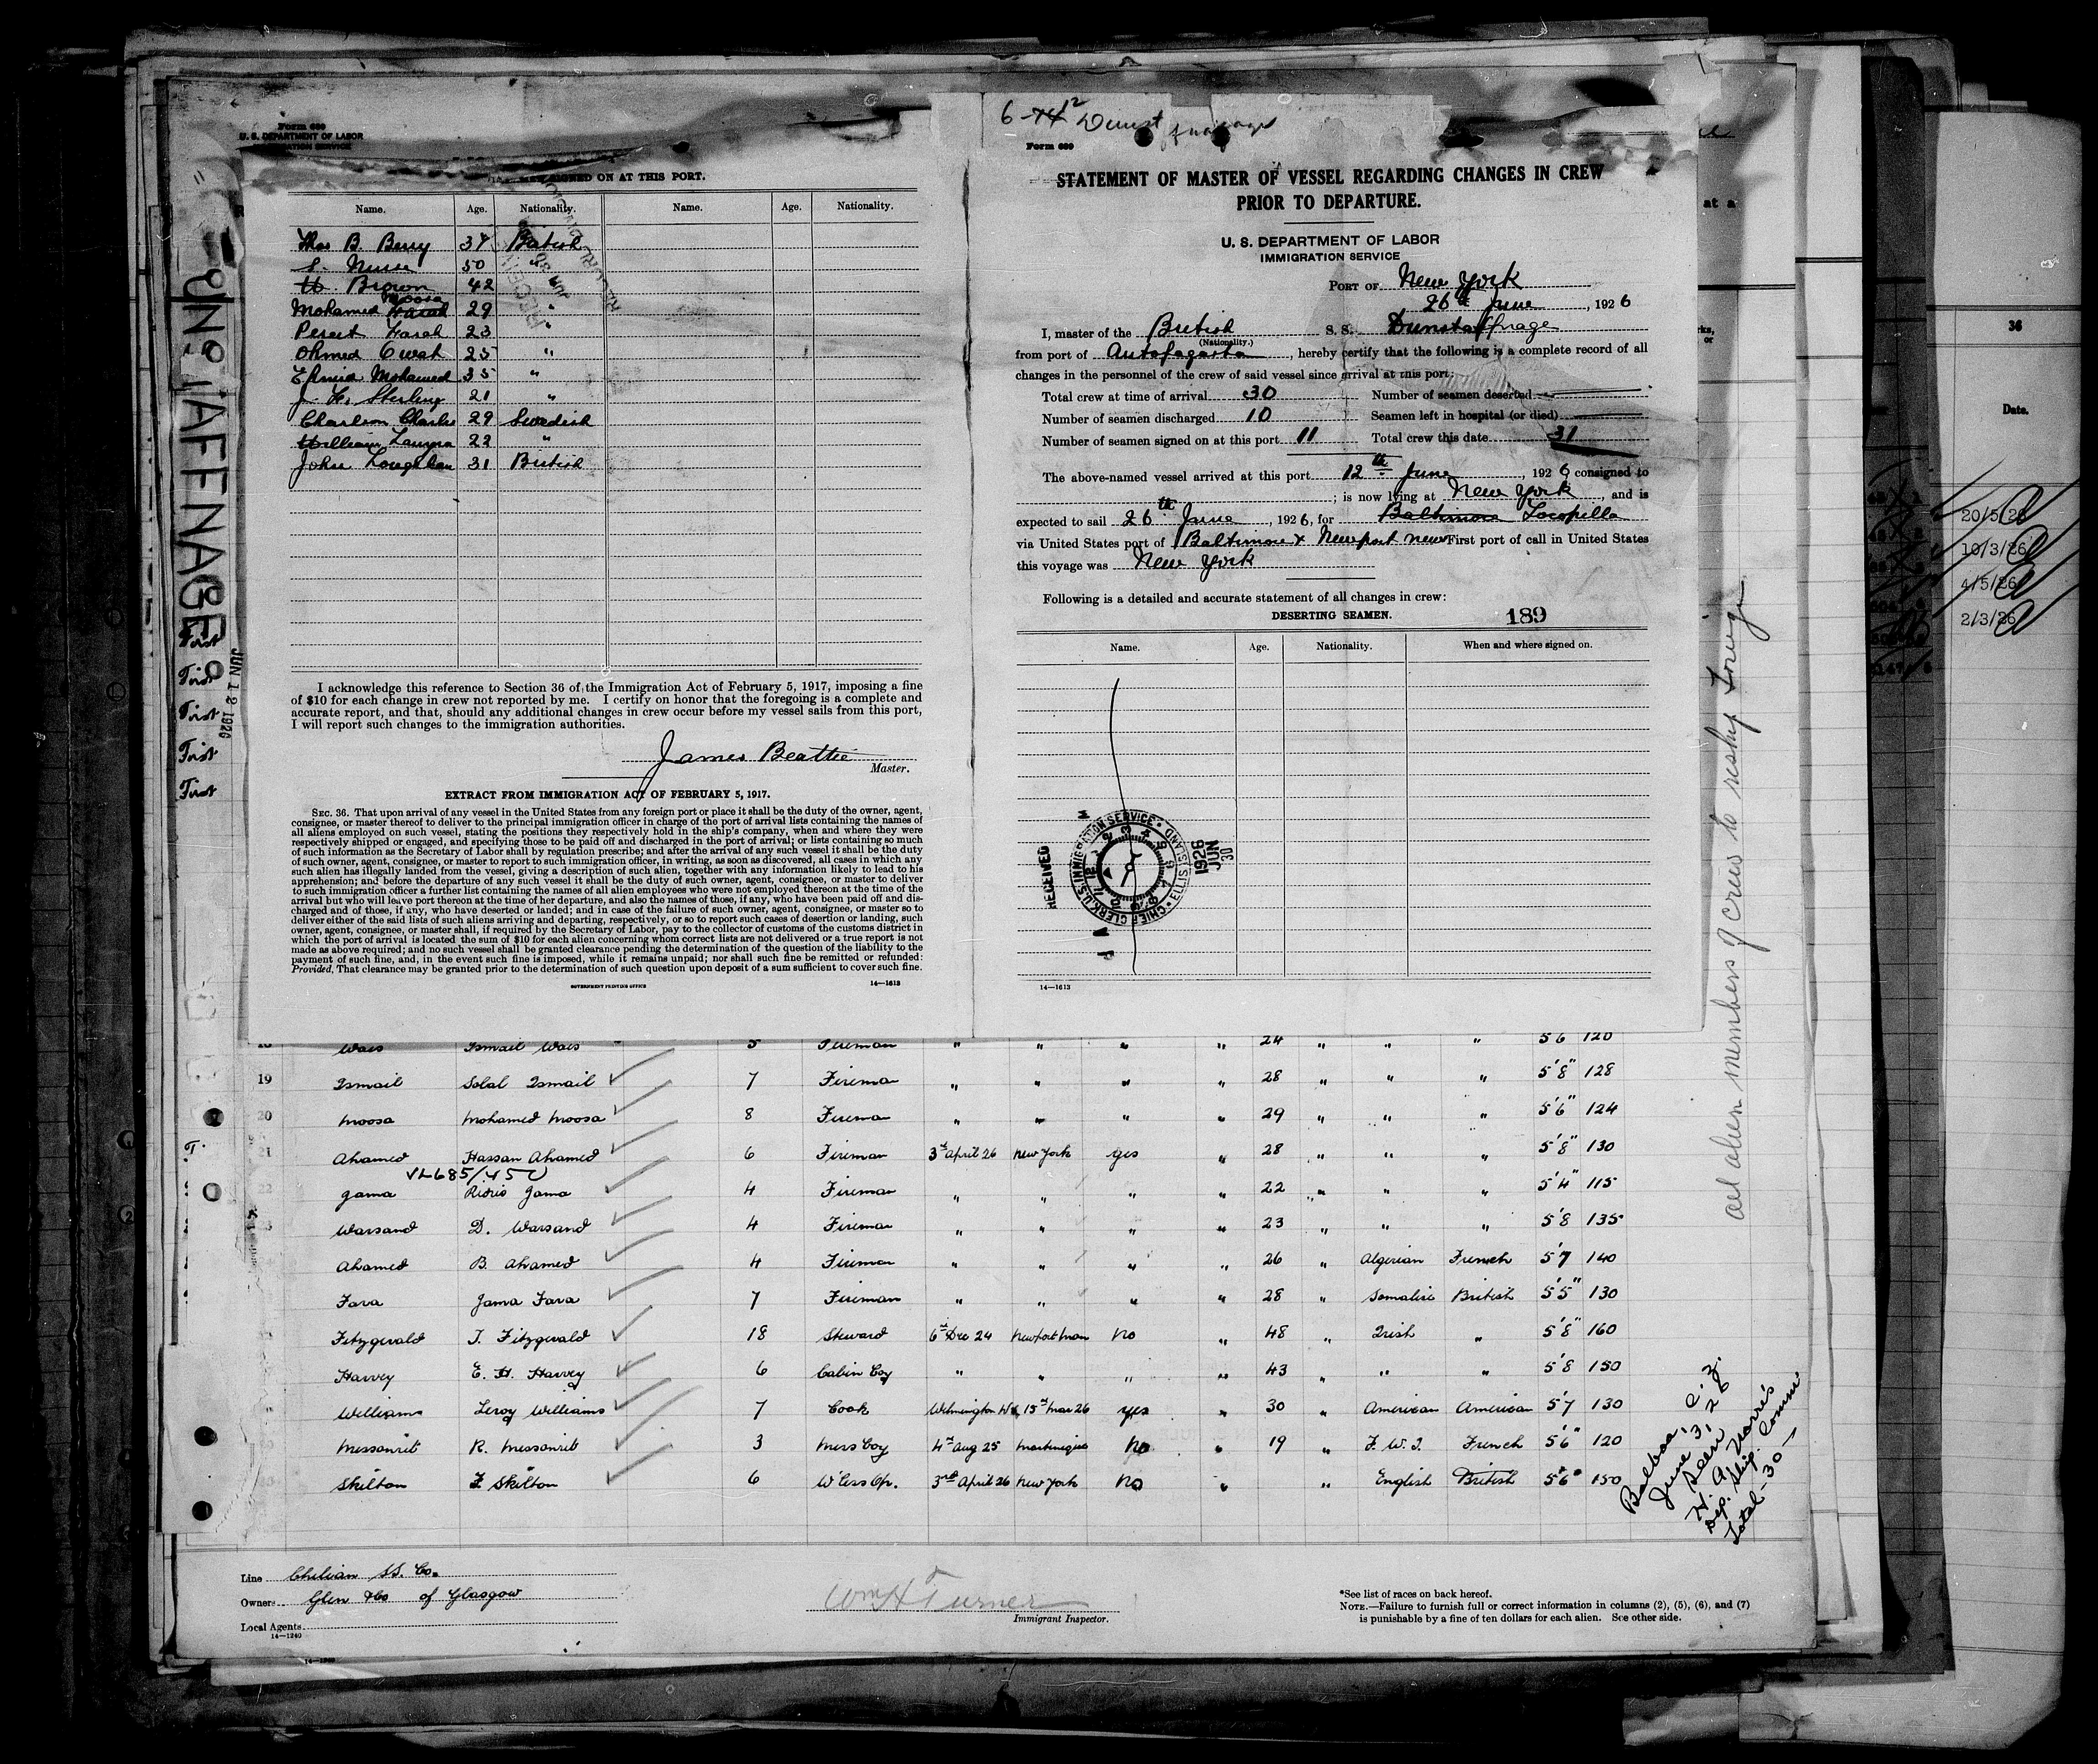 Form 689
U. S. DEPARTMENT OF LABOR
IMMIGRATION SERVICE
SIGNED ON AT THIS PORT.
Name. Age. Nationality. Name. Age. Nationality.
Thos B. Berry 37 British
S. Nurse 50 "
H. Brown 42
Mohamed Farah Moosa 29 "
Farah 23 "
Ahmed 25 "
Mohamed 35 "
J. H. Sterling 21 "
Charlson Charles 29 Swedish
William 22 "
John Loughlan 31 British
I acknowledge this reference to Section 36 of the Immigration Act of February 5, 1917, imposing a fine
of $10 for each change in crew not reported by me. I certify on honor that the foregoing is a complete and
accurate report, and that, should any additional changes in crew occur before my vessel sails from this port,
I will report such changes to the immigration authorities.
James Beattie
Master.
EXTRACT FROM IMMIGRATION ACT OF FEBRUARY 5, 1917.
SEC. 36. That upon arrival of any vessel in the United States from any foreign port or place it shall be the duty of the owner, agent,
consignee, or master thereof to deliver to the principal immigration officer in charge of the port of arrival lists containing the names of
all aliens employed on such vessel, stating the positions they respectively hold in the ship's company, when and where they were
respectively shipped or engaged, and specifying those to be paid off and discharged in the port of arrival; or lists containing so much
of such information as the Secretary of Labor shall by regulation prescribe; and after the arrival of any such vessel it shall be the duty
of such owner, agent, consignee, or master to report to such immigration officer, in writing, as soon as discovered, all cases in which any
such alien has illegally landed from the vessel, giving a description of such alien, together with any information likely to lead to his
apprehension; and before the departure of any such vessel it shall be the duty of such owner, agent, consignee, or master to deliver
to such immigration officer a further list containing the names of all alien employees who were not employed thereon at the time of the
arrival but who will leave port thereon at the time of her departure, and also the names of those, if any, who have been paid off and dis-
charged and of those, if any, who have deserted or landed; and in case of the failure of such owner, agent, consignee, or master so to
deliver either of the said lists of such aliens arriving and departing, respectively, or so to report such cases of desertion or landing, such
owner, agent, consignee, or master shall, if required by the Secretary of Labor, pay to the collector of customs of the customs district in
which the port of arrival is located the sum of $10 for each alien concerning whom correct lists are not delivered or a true report is not
made as above required; and no such vessel shall be granted clearance pending the determination of the question of the liability to the
payment of such fine, and, in the event such fine is imposed, while it remains unpaid; nor shall such fine be remitted or refunded:
Provided, That clearance may be granted prior to the determination of such question upon deposit of a sum sufficient to cover such fine.
GOVERNMENT PRINTING OFFICE 14—1613
6-12 Dunstaffnage
Form 689
STATEMENT OF MASTER OF VESSEL REGARDING CHANGES IN CREW
PRIOR TO DEPARTURE.
U. S. DEPARTMENT OF LABOR
IMMIGRATION SERVICE
PORT OF New York
26th June, 1926
I, master of the British S. S. Dunstaffnage
(Nationality.)
from port of Antofagasta, hereby certify that the following is a complete record of all
changes in the personnel of the crew of said vessel since arrival at this port:
Total crew at time of arrival 30 Number of seamen deserted
Number of seamen discharged 10 Seamen left in hospital (or died)
Number of seamen signed on at this port 11 Total crew this date 31
The above-named vessel arrived at this port 12th June, 1926 consigned to
; is now lying at New York, and is
expected to sail 26th June, 1926, for Baltimore Tocopilla
via United States port of Baltimore & Newport News First port of call in United States
this voyage was New York
Following is a detailed and accurate statement of all changes in crew:
DESERTING SEAMEN. 189
Name. Age. Nationality. When and where signed on.
RECEIVED
U.S. IMMIGRATION SERVICE
CHIEF CLERK
ELLIS ISLAND
1926 JUN 30
14—1613
DUNSTAFFNAGE
JUN 12 1926
First
First
First
First
First
at a
36
Date.
20/5/26
10/3/26
4/5/26
2/3/26
all alien members of crew to reship foreign
Wais Ismail Wais 5 Fireman " " " " 24 " " " 5'6 120
19 Ismail Solal Ismail 7 Fireman " " " " 28 " " " 5'8" 128
20 Moosa Mohamed Moosa 8 Fireman " " " " 29 " " " 5'6" 124
21 Ahamed Hassan Ahamed 6 Fireman 3rd April 26 New York yes " 28 " " " 5'8" 130
22 Jama Jama 4 Fireman " " " " 22 " " " 5'4" 115
Warsand D. Warsand 4 Fireman " " " " 23 " " " 5'8 135
Ahamed B. Ahamed 4 Fireman " " " " 26 " Algerian French 5'7 140
Fara Jama Fara 7 Fireman " " " " 28 " Somalie British 5'5" 130
Fitzgerald T. Fitzgerald 18 Steward 6th Dec 24 no " 48 " Irish " 5'8" 160
Harvey E. H. Harvey 6 Cabin Boy " " " " 43 " " " 5'8 150
Williams Leroy Williams 7 Cook Wilmington 15th Mar 26 yes " 30 " American American 5'7 130
Messonrit R. Messonrit 3 Mess boy 4th Aug 25 Martinique no " 19 " F. W. I. French 5'6" 120
Skilton F Skilton 6 W'less Op. 3rd April 26 New York no " " English British 5'6" 150
Balboa, C. Z.
June 3, 26
Seen
H. A. Norris
Dep. Ship. Comm.
Total - 30 -
Line Chilian SS. Co.
Owners Glen & Co of Glasgow
Local Agents
14—1240
Wm H Turner
Immigrant Inspector.
*See list of races on back hereof.
NOTE.—Failure to furnish full or correct information in columns (2), (5), (6), and (7)
is punishable by a fine of ten dollars for each alien. See other side.